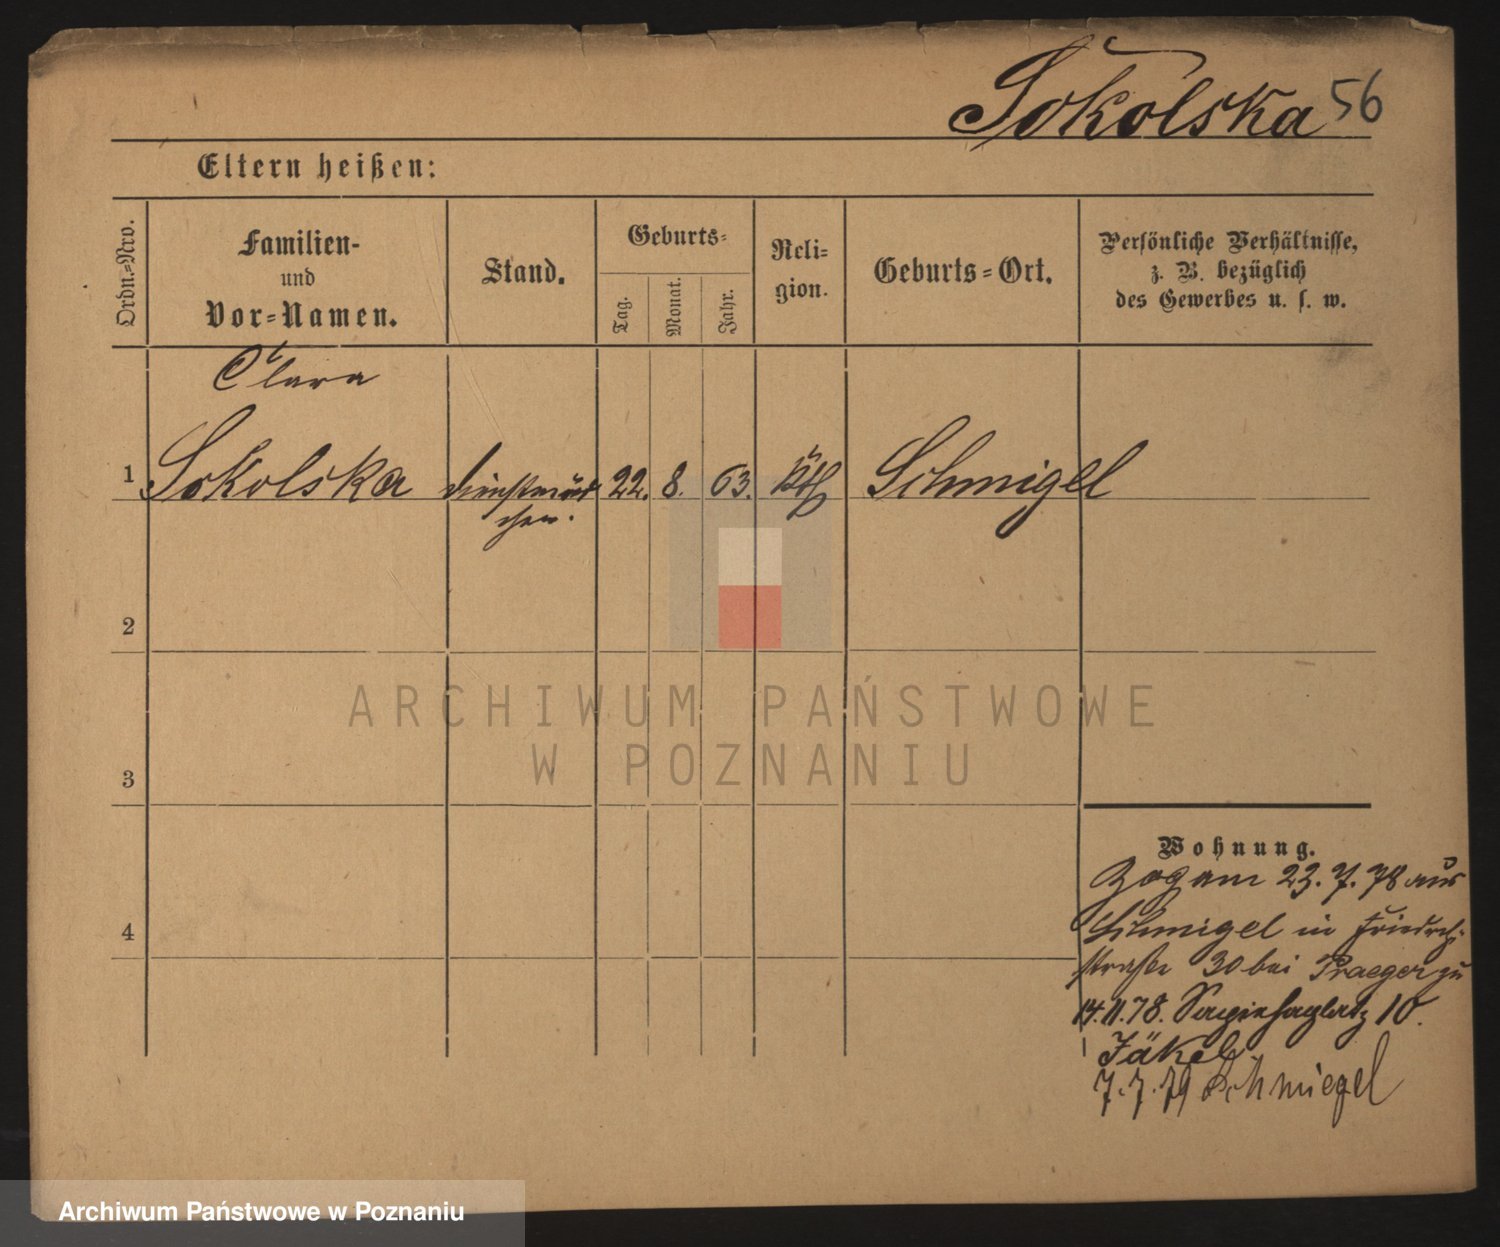 Sokolska 56
Eltern heißen:
Ordn.=Nro.
Familien-
und
Vor=Namen.
Stand.
Geburts=
Tag.
Monat.
Jahr.
Reli=
gion.
Geburts=Ort.
Persönliche Verhältnisse,
z. B. bezüglich
des Gewerbes u. s. w.
Clara
1 Sokolska Dienstmäd 22. 8. 63. Kth Schmigel
chen.
2
3
4
Wohnung.
Zog am 23. 7. 78 aus
Schmigel in Friedrich
straße 30 bei Praeger zu
14.11.78. Sapiehaplatz 10.
Jäkel
7.7.79 Schmiegel
ARCHIWUM PAŃSTWOWE
W POZNANIU
Archiwum Państwowe w Poznaniu